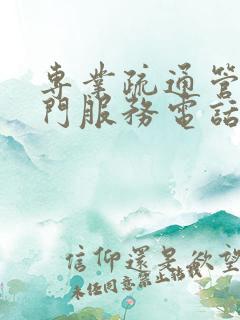 專業疏通管
門服務電話
信仰還是欲望
未任同意禁止轉載